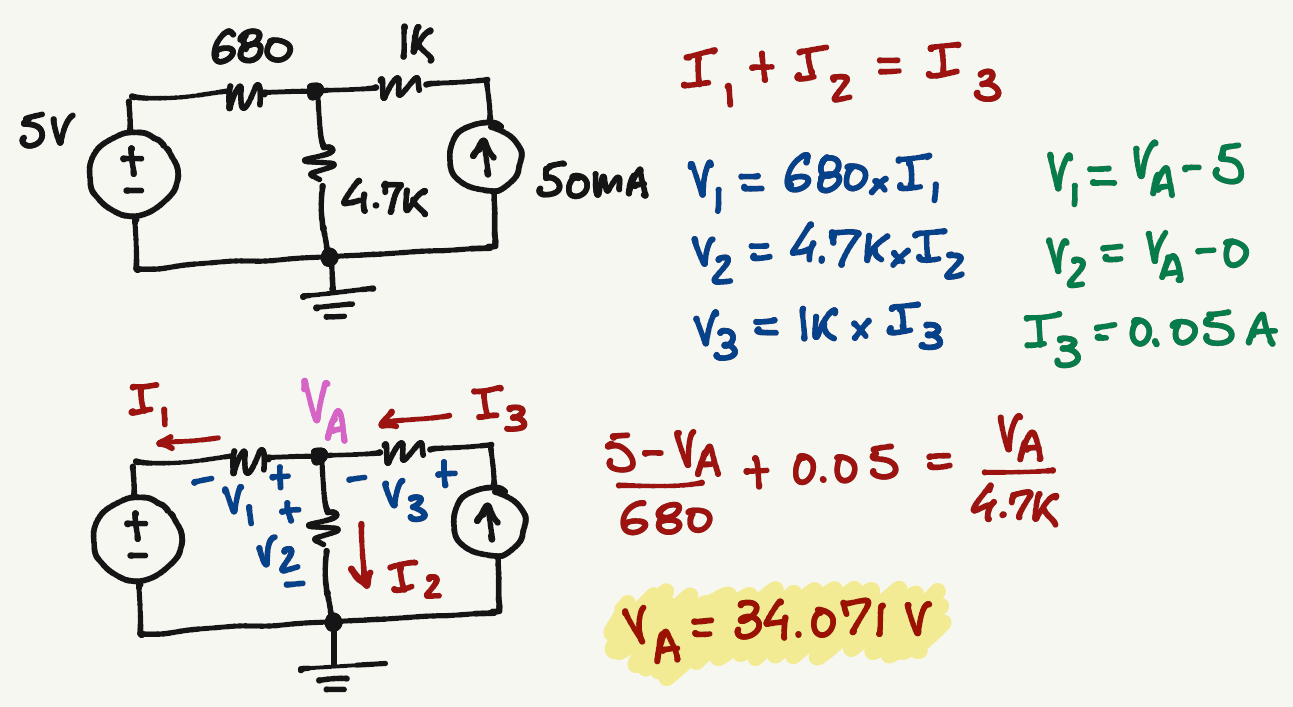 680 1K
5V
+
-
4.7K
50mA
I₁ + I₂ = I₃
V₁ = 680 x I₁
V₂ = 4.7K x I₂
V₃ = 1K x I₃
V₁ = V_A - 5
V₂ = V_A - 0
I₃ = 0.05 A
I₁ V_A I₃
- V₁ + - V₃ +
+
V₂
-
I₂
+
-
(5 - V_A)/680 + 0.05 = V_A/4.7K
V_A = 34.071 V